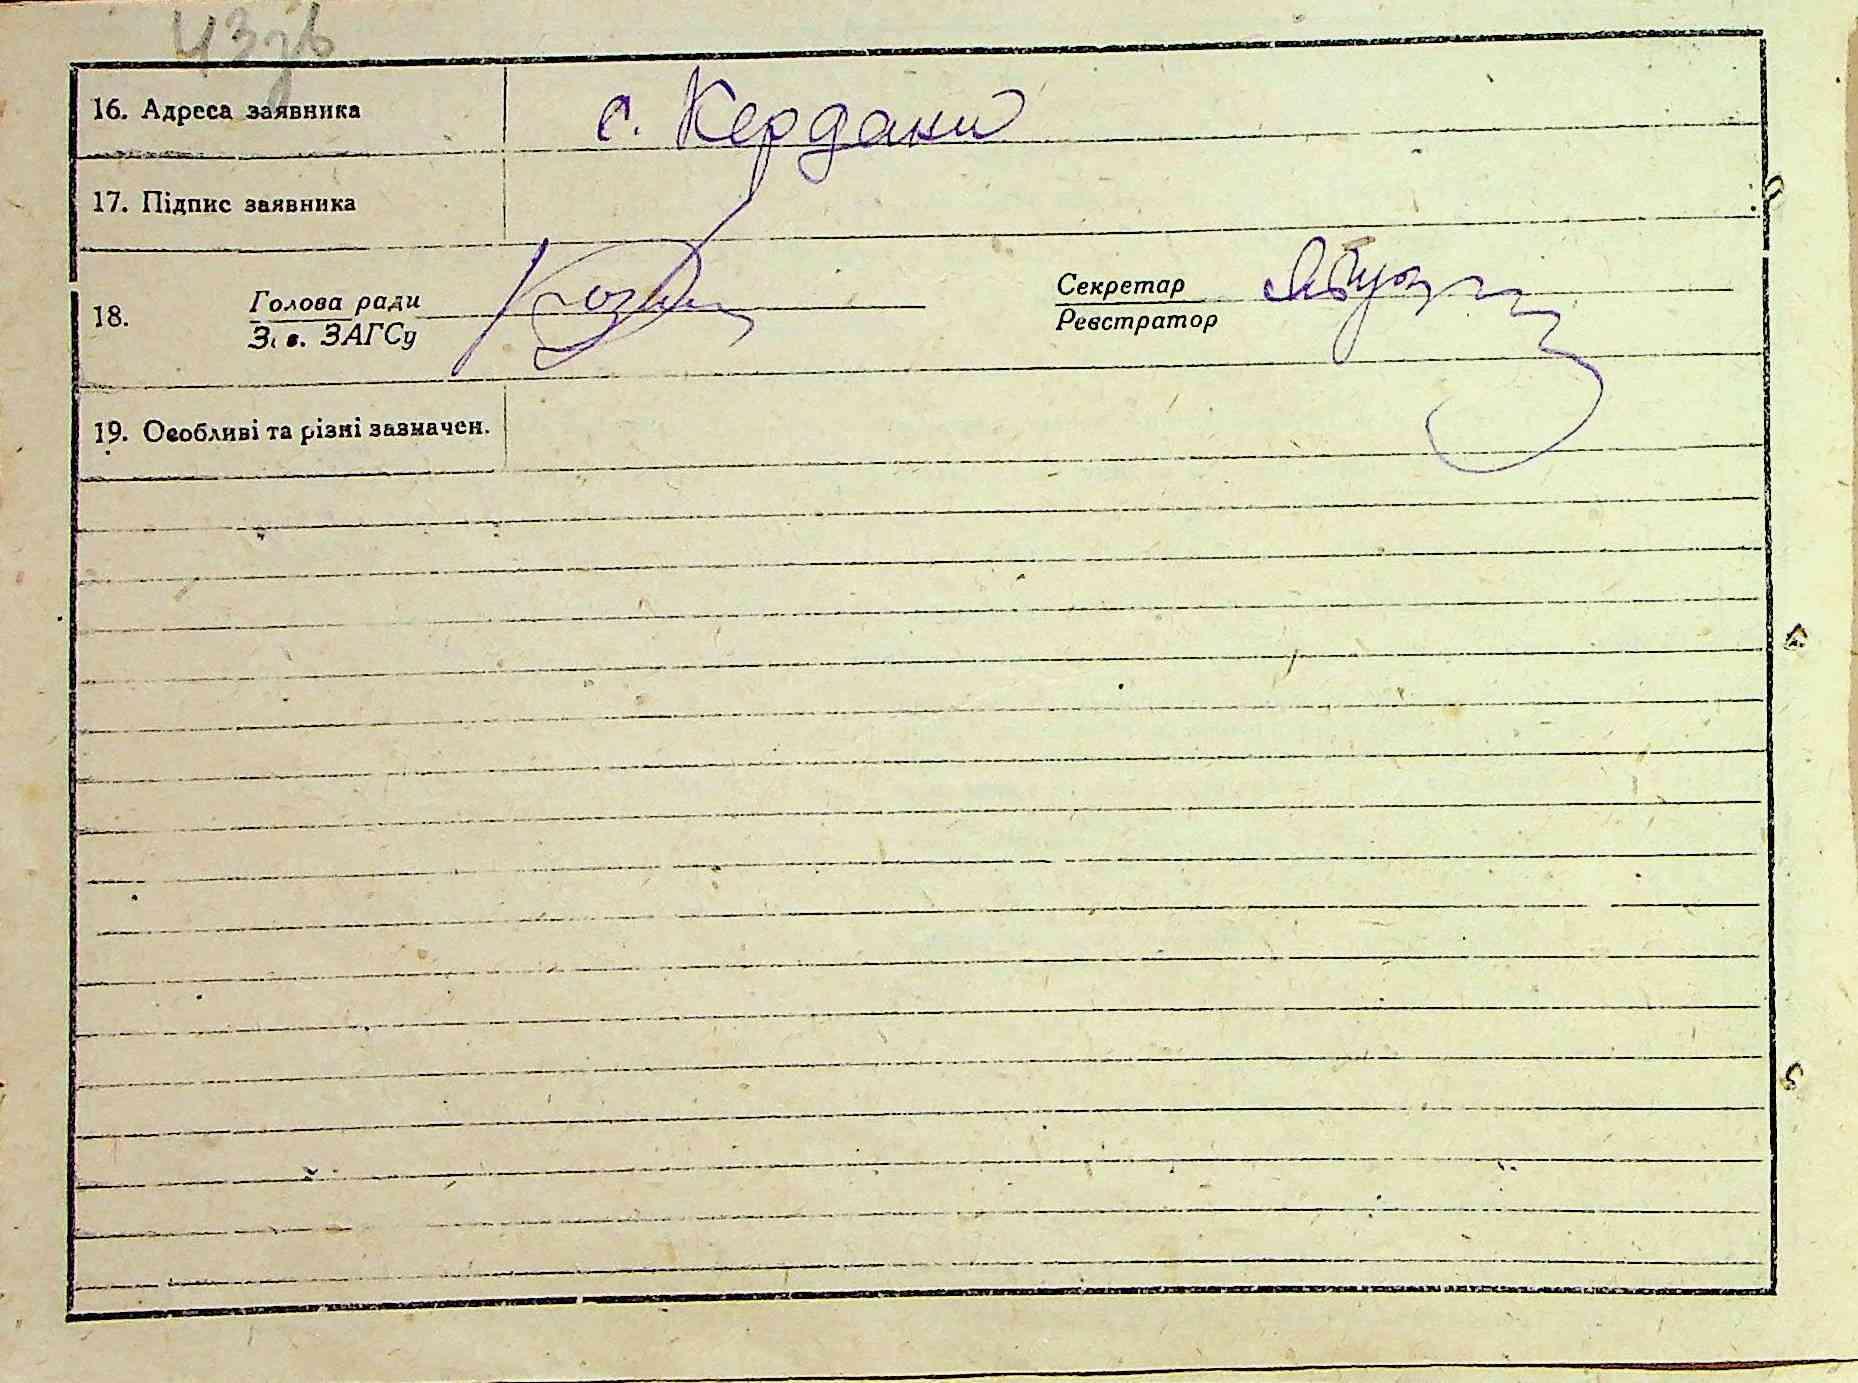 43зв
16. Адреса заявника с. Кердани
17. Підпис заявника
18. Голова ради Секретар
Зав. ЗАГСу Реєстратор
19. Особливі та різні зазначен.